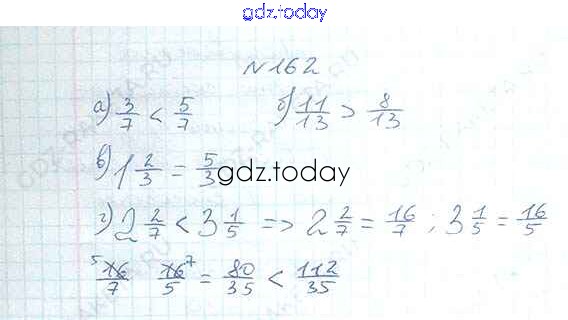 gdz.today
N162
а) 3/7 < 5/7 б) 11/13 > 8/13
в) 1 2/3 = 5/3
gdz.today
г) 2 2/7 < 3 1/5 => 2 2/7 = 16/7 ; 3 1/5 = 16/5
5 16/7 16/5 7 = 80/35 < 112/35